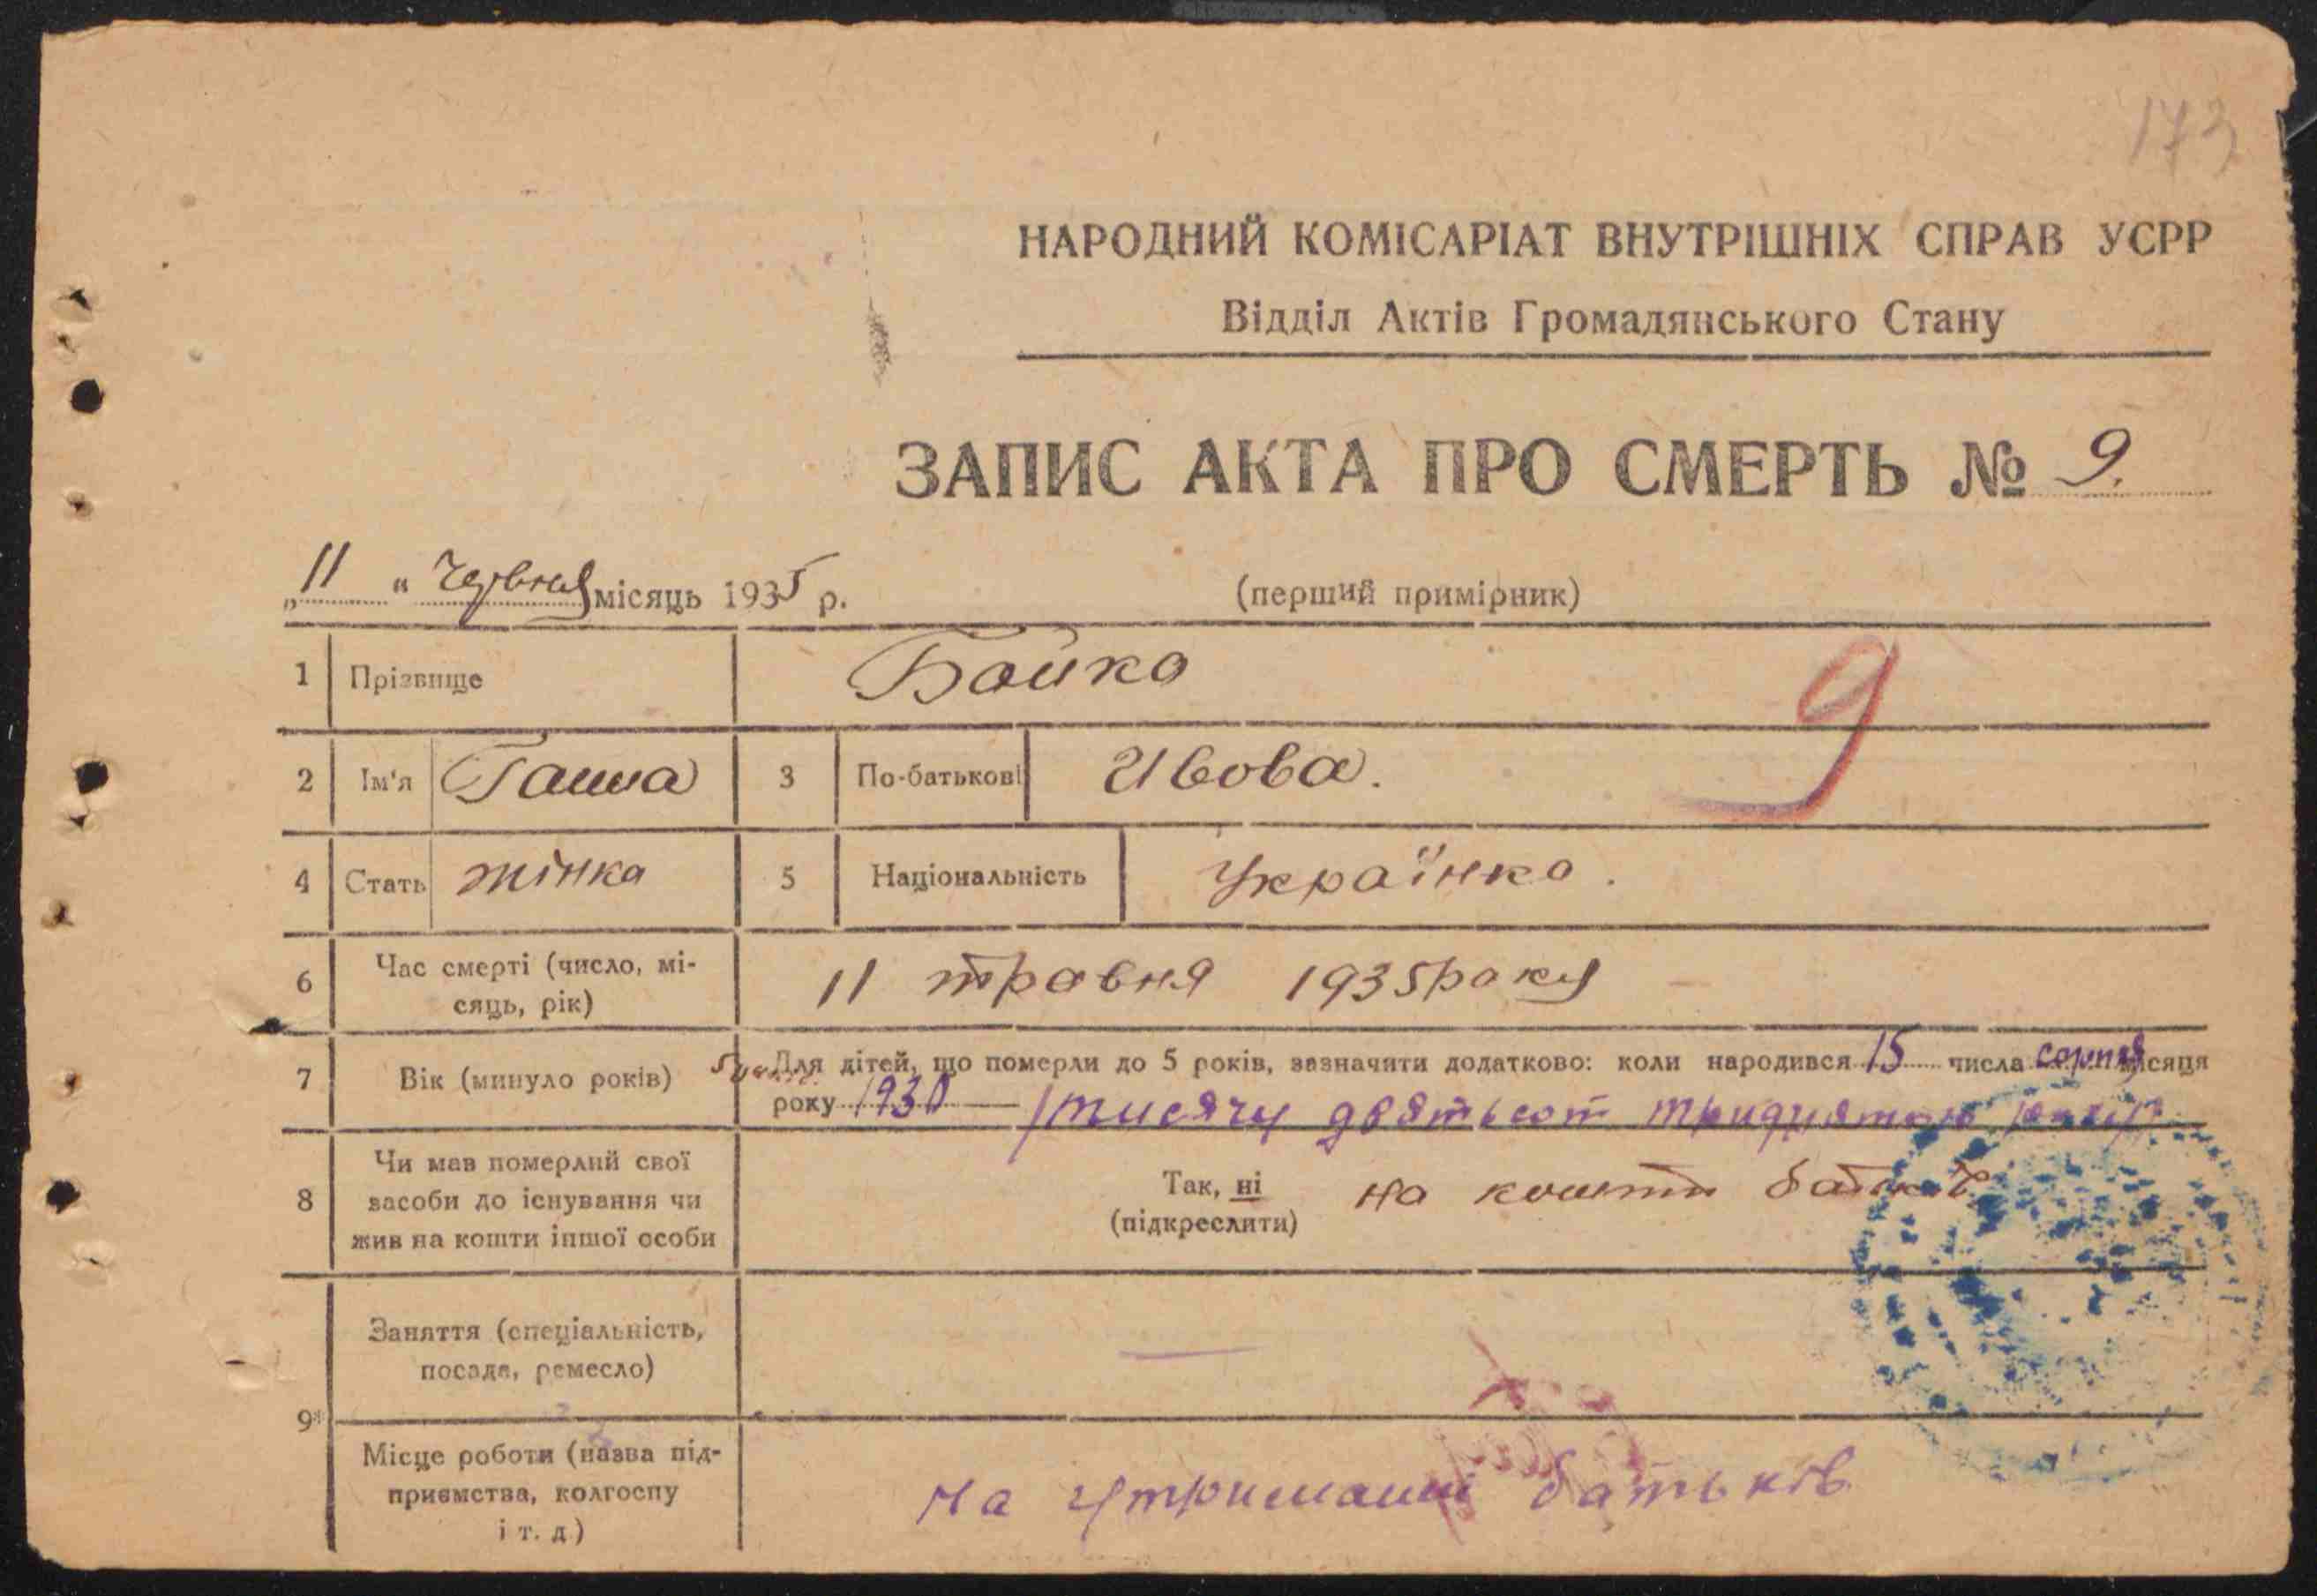 173
НАРОДНИЙ КОМІСАРІАТ ВНУТРІШНІХ СПРАВ УСРР
Відділ Актів Громадянського Стану
ЗАПИС АКТА ПРО СМЕРТЬ № 9.
„11“ Червня місяць 1935 р.
(перший примірник)
1 Прізвище Бойко
9
2 Ім'я Ганна 3 По-батькові Івова.
4 Стать жінка 5 Національність Українка.
6 Час смерті (число, мі-
сяць, рік) 11 травня 1935 року
7 Вік (минуло років) 5 Для дітей, що померли до 5 років, зазначити додатково: коли народився 15 числа серпня місяця
року 1930 — /тисячу двятьсот тридцятого року/
8 Чи мав померлий свої
засоби до існування чи
жив на кошти іншої особи
Так, ні на кошти батьків
(підкреслити)
9*
Заняття (спеціальність,
посада, ремесло) —
Місце роботи (назва під-
приємства, колгоспу
і т. д.) на утриманні батьків